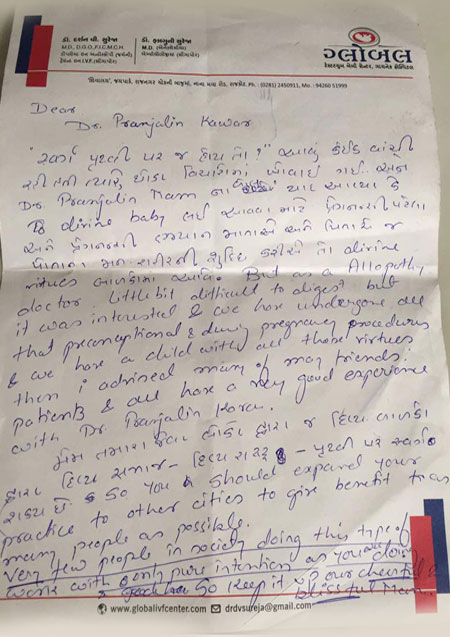 ડૉ. દર્શન વી. સુરેજા
M.D., D.G.O., F.I.C.M.C.H.
ડૉ. ફાલ્ગુની સુરેજા
M.D.
ગ્લોબલ
રાજકોટ. Ph. : (0281) 2450911, Mo. : 94260 51999
Dear
Dr. Pranjalin Kawar
"સ્વર્ગ પૃથ્વી પર જ હોય તો!" આવું કંઈક વાંચી
રહી હતી ત્યારે થોડા વિચારોમાં ખોવાઈ ગઈ.. અને
Dr Pranjalin Mam ના યાદ આવ્યા કે
divine baby લઈ આવવા માટે પ્રેગનન્સી પહેલા
અને પ્રેગનન્સી દરમ્યાન માતાએ અને પિતાએ જ
પોતાના મન શરીરની શુદ્ધિ કરીએ તો divine
virtues બાળકમાં આવે. But as a Allopathy
doctor little bit difficult to digest but
it was interested & we have undergone all
that preconceptional & during pregnancy procedures
& we have a child with all those virtues
then i advised many of my friends,
patients & all have a very good experience
with Dr Pranjalin
મેમ તમારા જેવા લોકો દ્વારા જ દિવ્ય બાળકો
દ્વારા દિવ્ય સમાજ - દિવ્ય રાષ્ટ્ર - પૃથ્વી પર સ્વર્ગ
શક્ય છે so you should expand your
practice to other cities to give benefit
many people as possible.
Very few people in society doing this type of
work with only pure intention as you are doing
So keep it up our cheerful &
blissful Mam.
www.globalivfcenter.com
drdvsureja@gmail.com